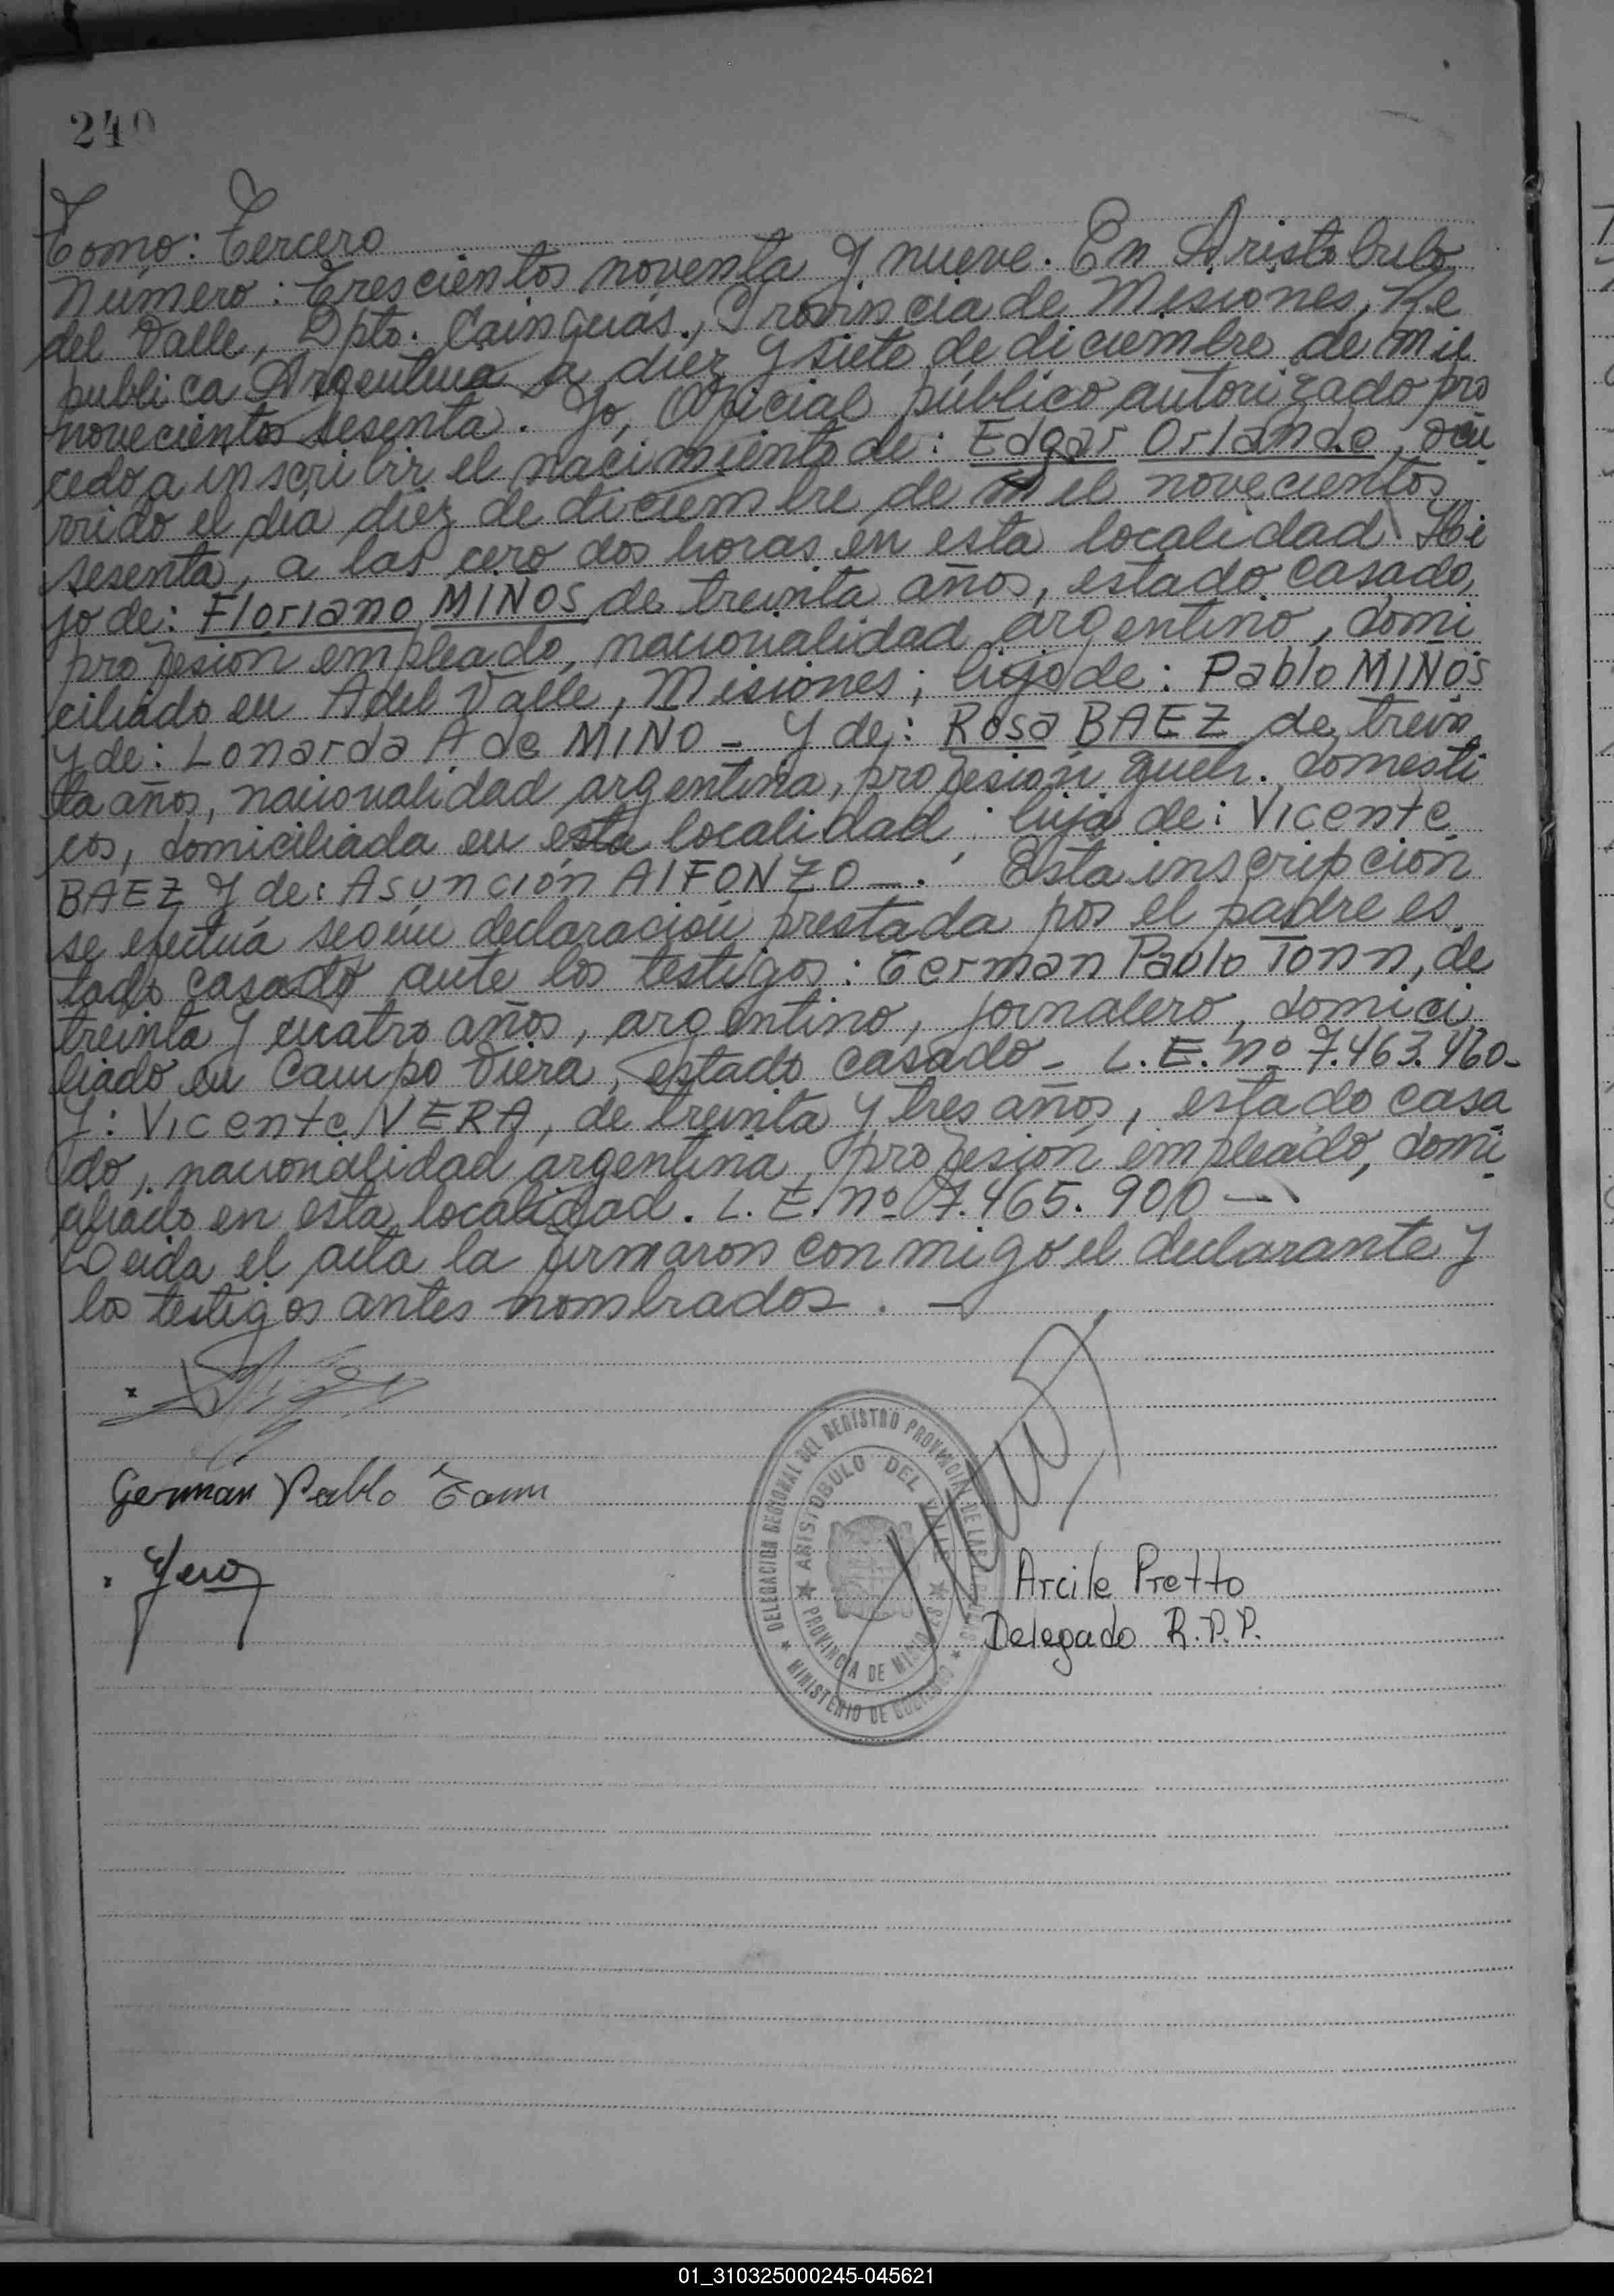 240
Tomo: Tercero
Número: Trescientos noventa y nueve. En Aristobulo
del Valle, Dpto. Cainguás, Provincia de Misiones, Re
publica Argentina a diez y siete de diciembre de mil
novecientos sesenta. Yo, Oficial público autorizado pro
cedo a inscribir el nacimiento de: Edgar Orlando, ocu
rrido el día diez de diciembre de mil novecientos
sesenta, a las cero dos horas en esta localidad Hi
jo de: Floriano MIÑOS de treinta años, estado casado,
profesión empleado, nacionalidad argentino, domi
ciliado en A del Valle, Misiones; hijo de: Pablo MIÑOS
y de: Lonarda A de MINO - Y de: Rosa BAEZ de trein
ta años, nacionalidad argentina, profesión queh. domesti
cos, domiciliada en esta localidad; hija de: Vicente
BAEZ y de: Asunción AlFONZO -. Esta inscripción
se efectuá según declaración prestada por el padre es
tado casado ante los testigos: German Paulo Tonn, de
treinta y cuatro años, argentino, jornalero, domici
liado en Campo Viera, estado casado - L.E. nº 7.463.460-
Y: Vicente VERA, de treinta y tres años, estado casa
do, nacionalidad argentina, profesión empleado, domi
ciliado en esta localidad. L.E. nº 7.465.900 —
Leida el acta la firmaron conmigo el declarante y
los testigos antes nombrados. -
German Pablo Tonn
DELEGACION REGIONAL DEL REGISTRO PROVINCIAL DE LAS PERSONAS
ARISTOBULO DEL VALLE
PROVINCIA DE MISIONES
MINISTERIO DE GOBIERNO
Arcile Pretto
Delegado R.P.P.
01_310325000245-045621